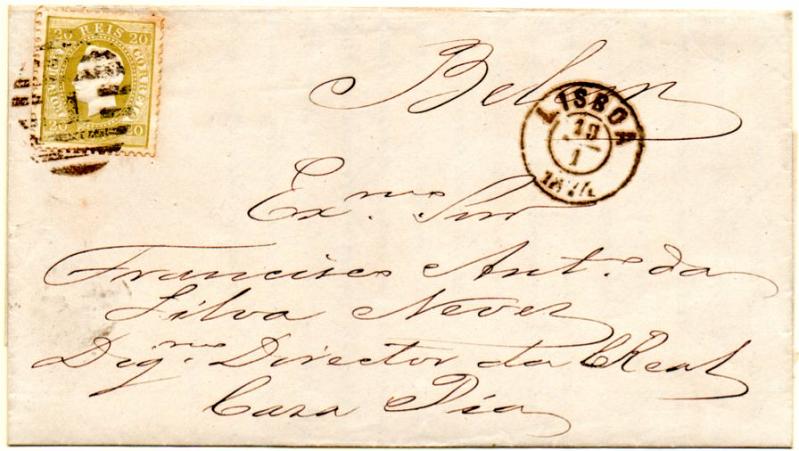 20 REIS 20
PORTUGAL CORREIO
20 20
Belem
LISBOA
19
1
1874
Ex.mo Snr
Francisco Ant.o da
Silva Neves
Dig.mo Director da Real
Casa Pia